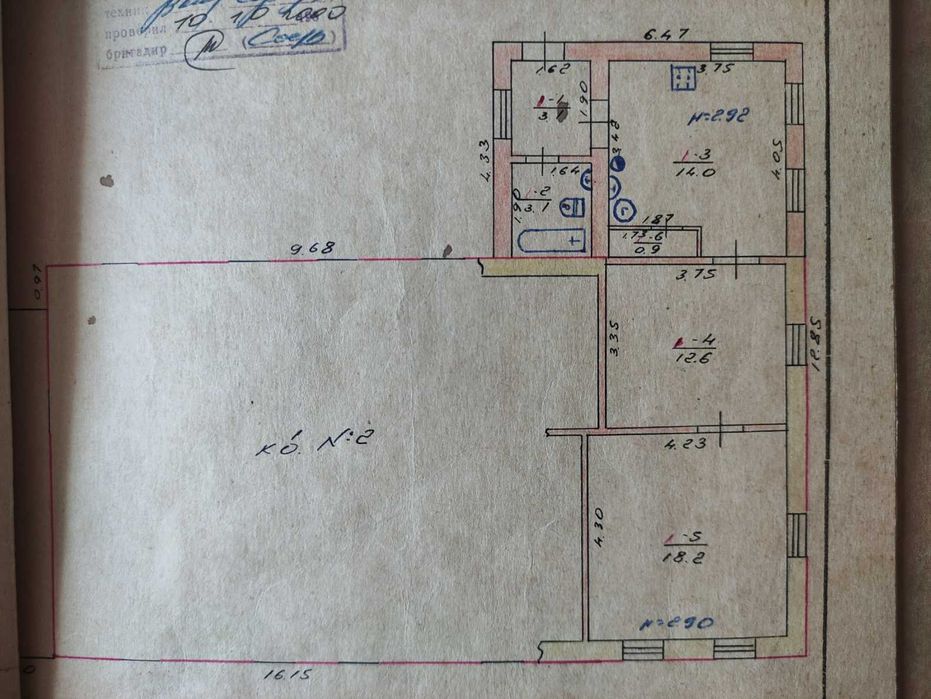 техник
проверил 10. 10 2000
бригадир
6.47
1.62
3.75
1-1
1.90
h=2.92
3.48
4.33
1-3
14.0
4.05
1.64
1-2
3.1
1.90
1.87
1.73
1-6
0.9
9.68
3.75
0.97
3.35
1-4
12.6
12.85
кв. №2
4.23
4.30
1-5
18.2
h=2.90
16.15